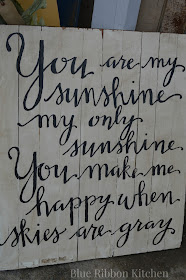 You are my
sunshine
my only
sunshine
You make me
happy when
skies are gray
Blue Ribbon Kitchen